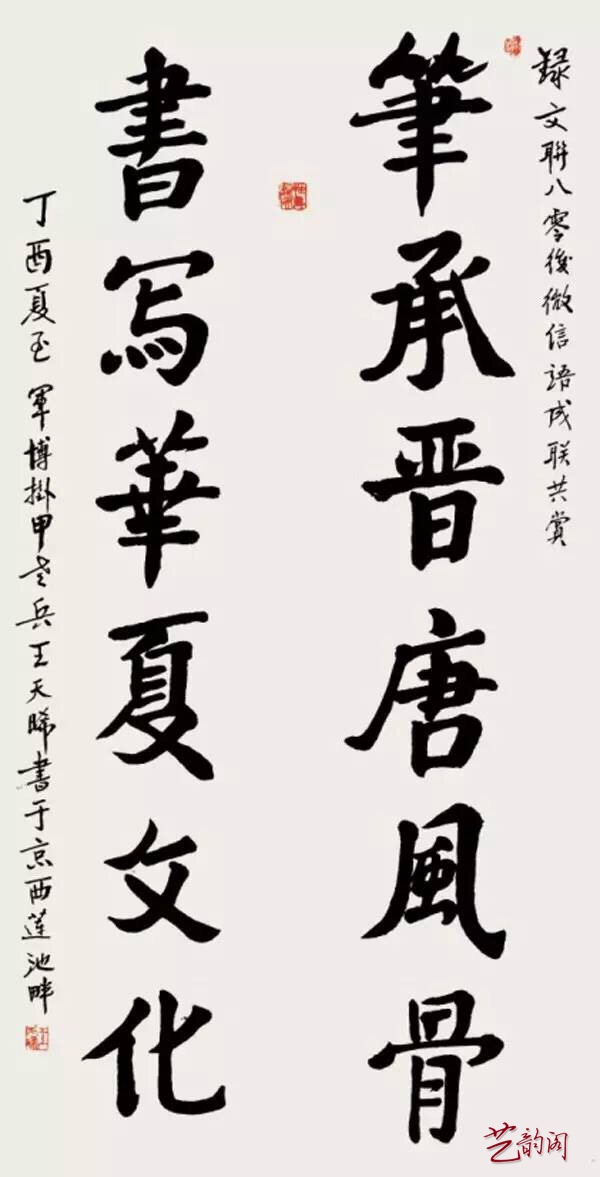 録文聯八零後微信語成联共赏
筆承晋唐風骨
書写華夏文化
丁酉夏至軍博掛甲老兵王天晞書于京西莲池畔
艺韵阁